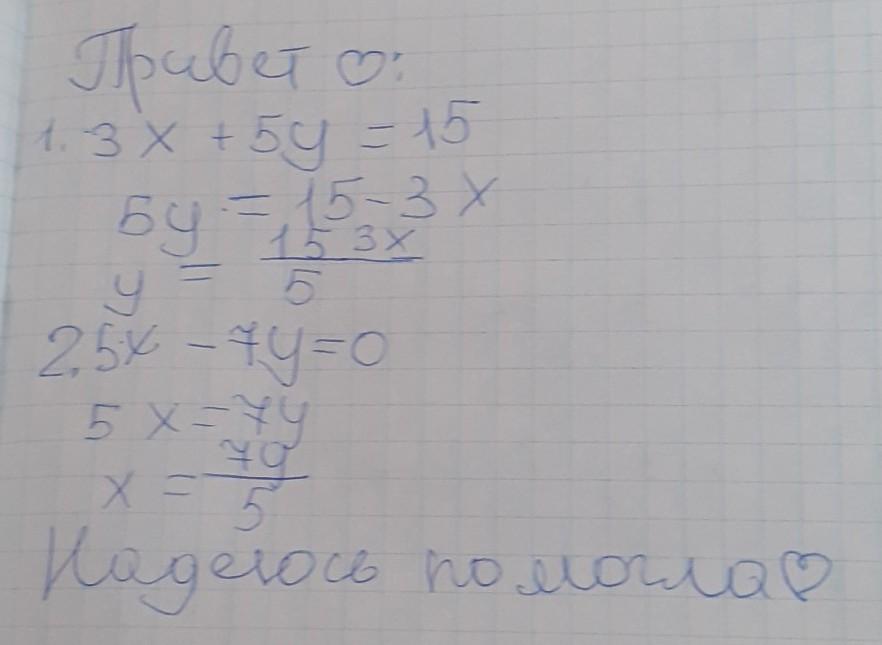 Привет ♡:
1. 3x + 5y = 15
5y = 15 - 3x
y = \frac{15 3x}{5}
2. 5x - 7y = 0
5x = 7y
x = \frac{7y}{5}
Надеюсь помогла♡